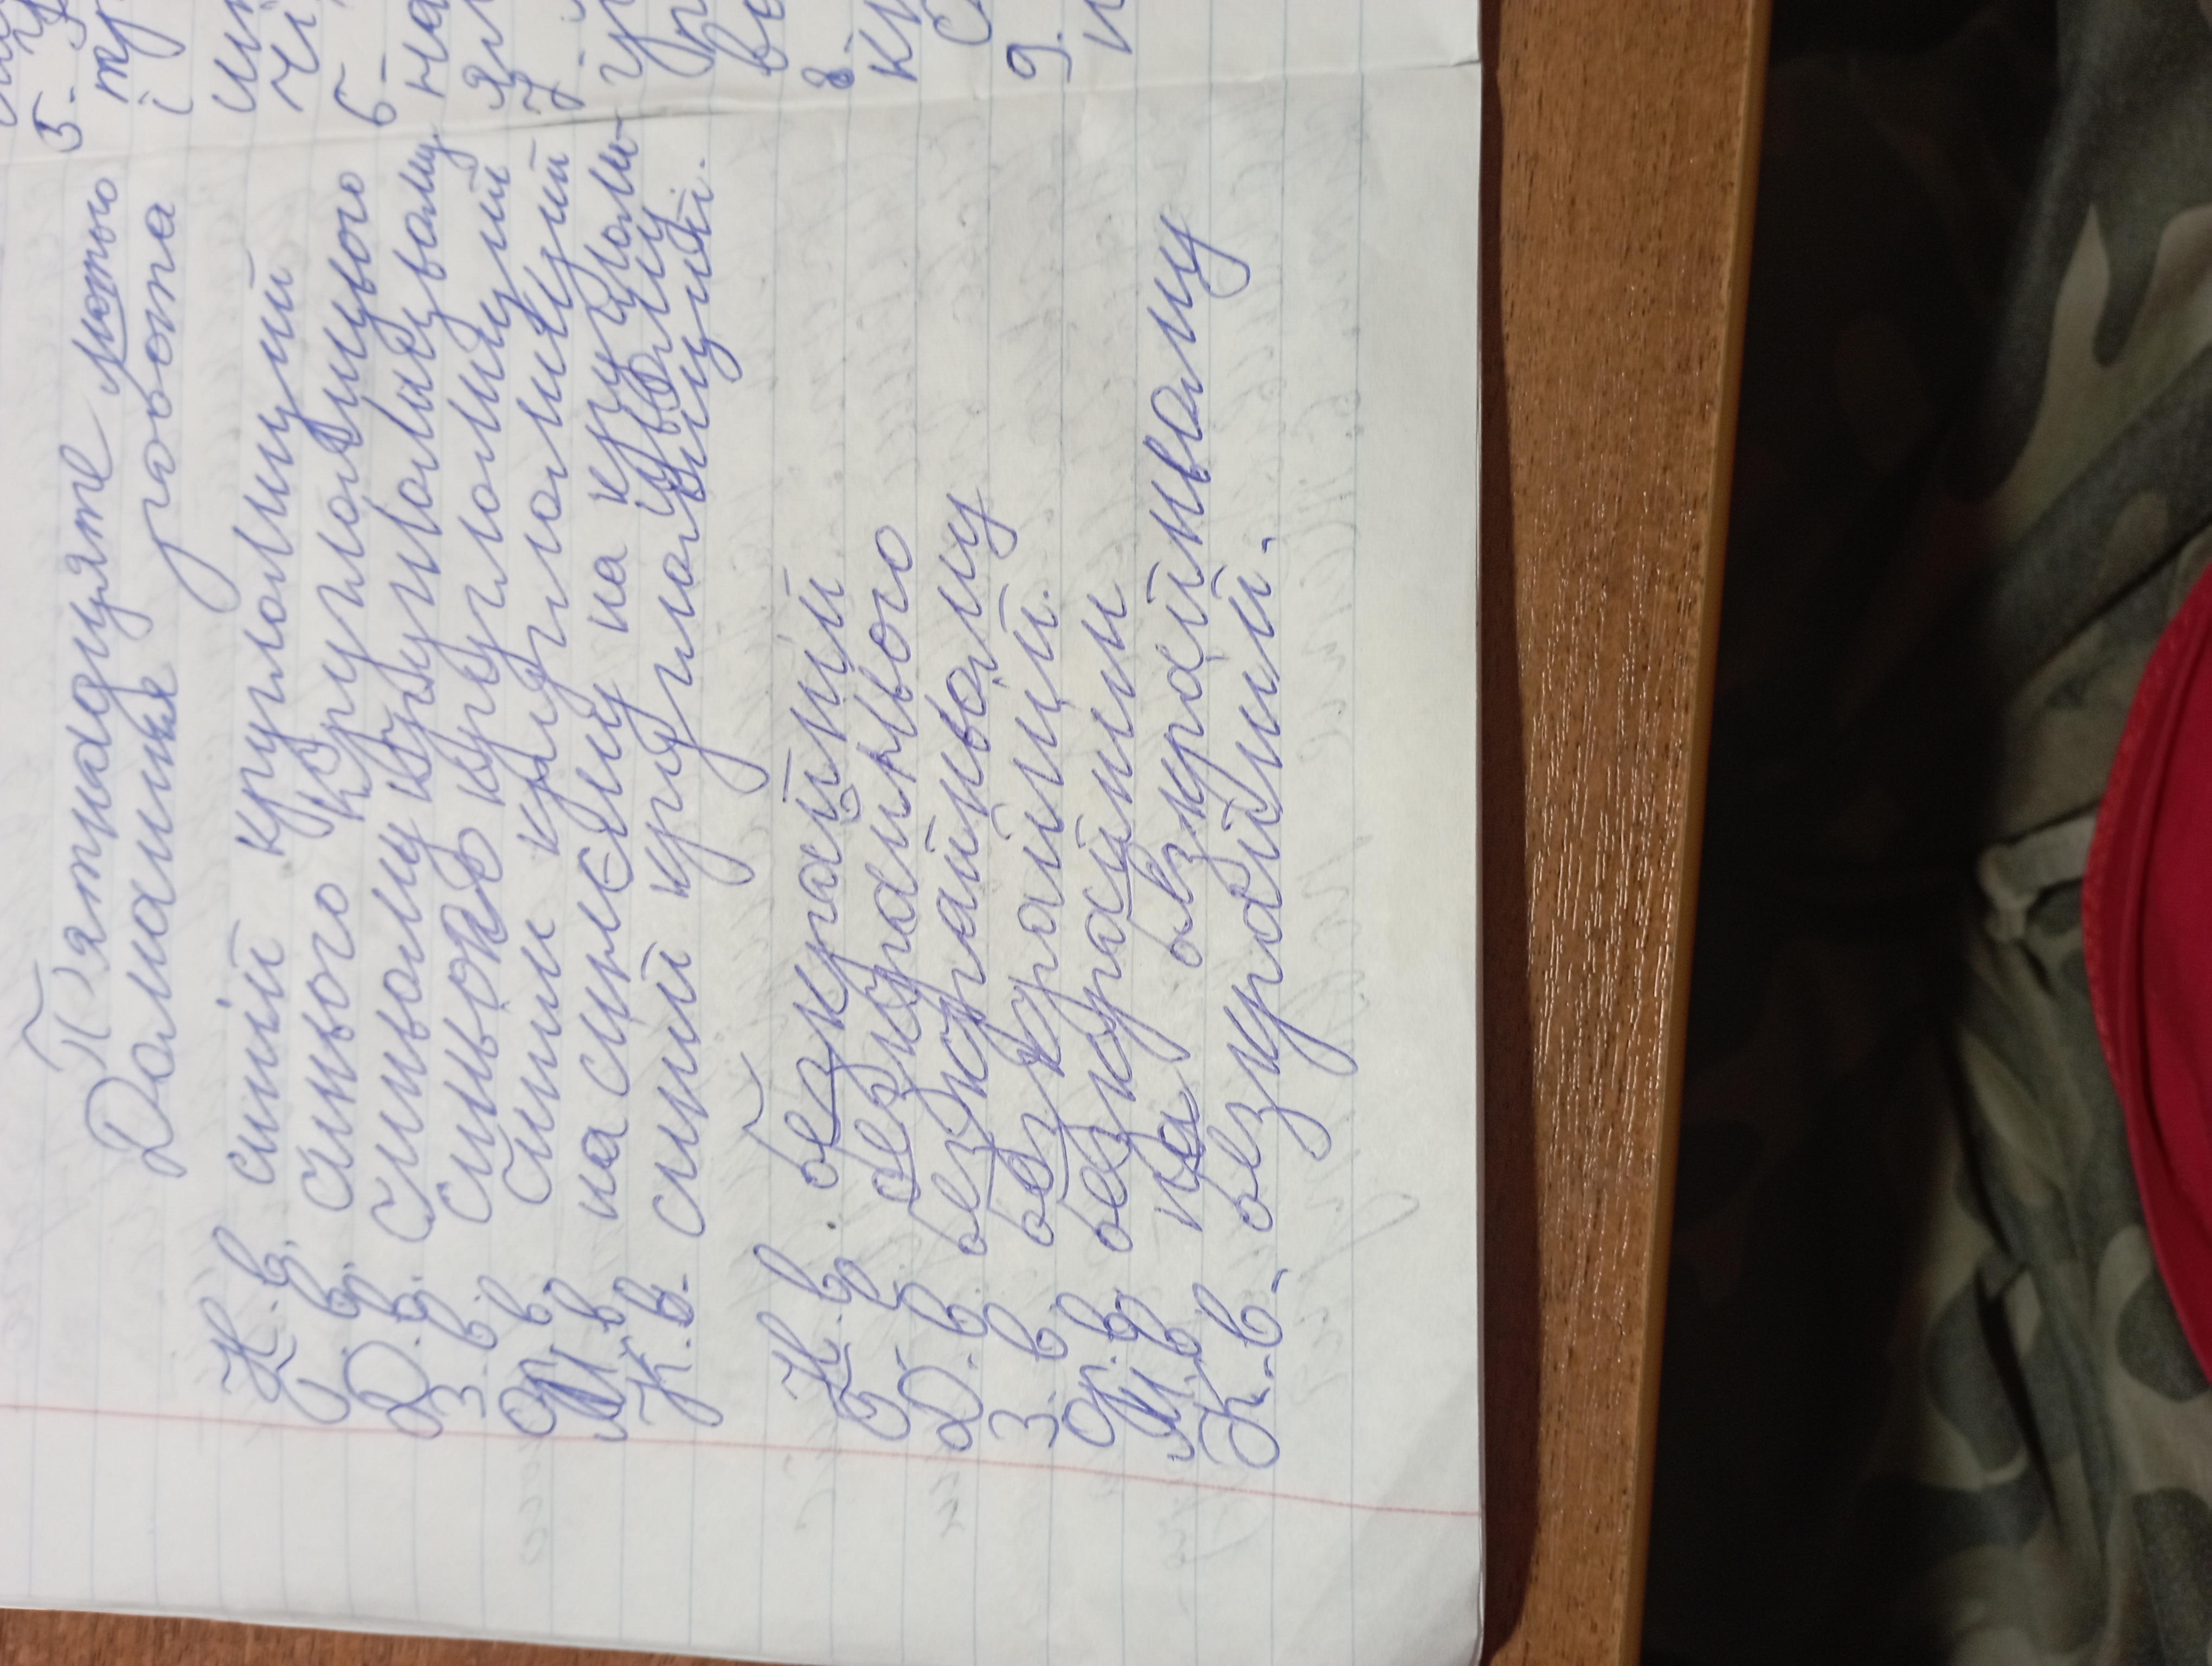 П'ятнадцяте лютого
Домашня робота
Н.в. синій круглолиций
Р.в. синього круглолицього
Д.в. синьому круглолицьому
З.в. синього круглолиций
Ор.в. синим круглолиций
М.в. на синьєму на круглоли-
цьому
К.в. синий круглолиций.
Н.в. безкрайній
Р.в. безкрайнього
Д.в. безкрайньому
З.в. безкрайний.
Ор.в. безкрайним
М.в. на безкрайньому
К.в. безкрайний.
5.
і
6-на
7.
8.
9.